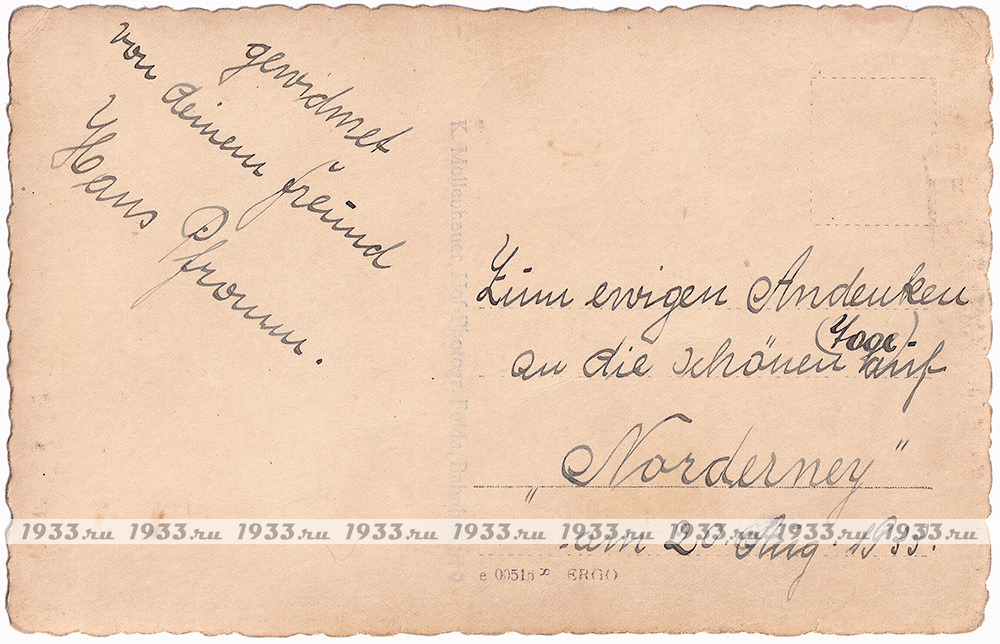 gewidmet
von deinem freund
Hans Pfromm.
K. Mollenhauer, Hof-Photogr. Fulda,
Zum ewigen Andenken
an die schönen (Tage) auf
„Norderney"
am 20. Aug. 1933.
1933.ru 1933.ru 1933.ru 1933.ru 1933.ru 1933.ru 1933.ru 1933.ru 1933.ru
e 00515 ERGO